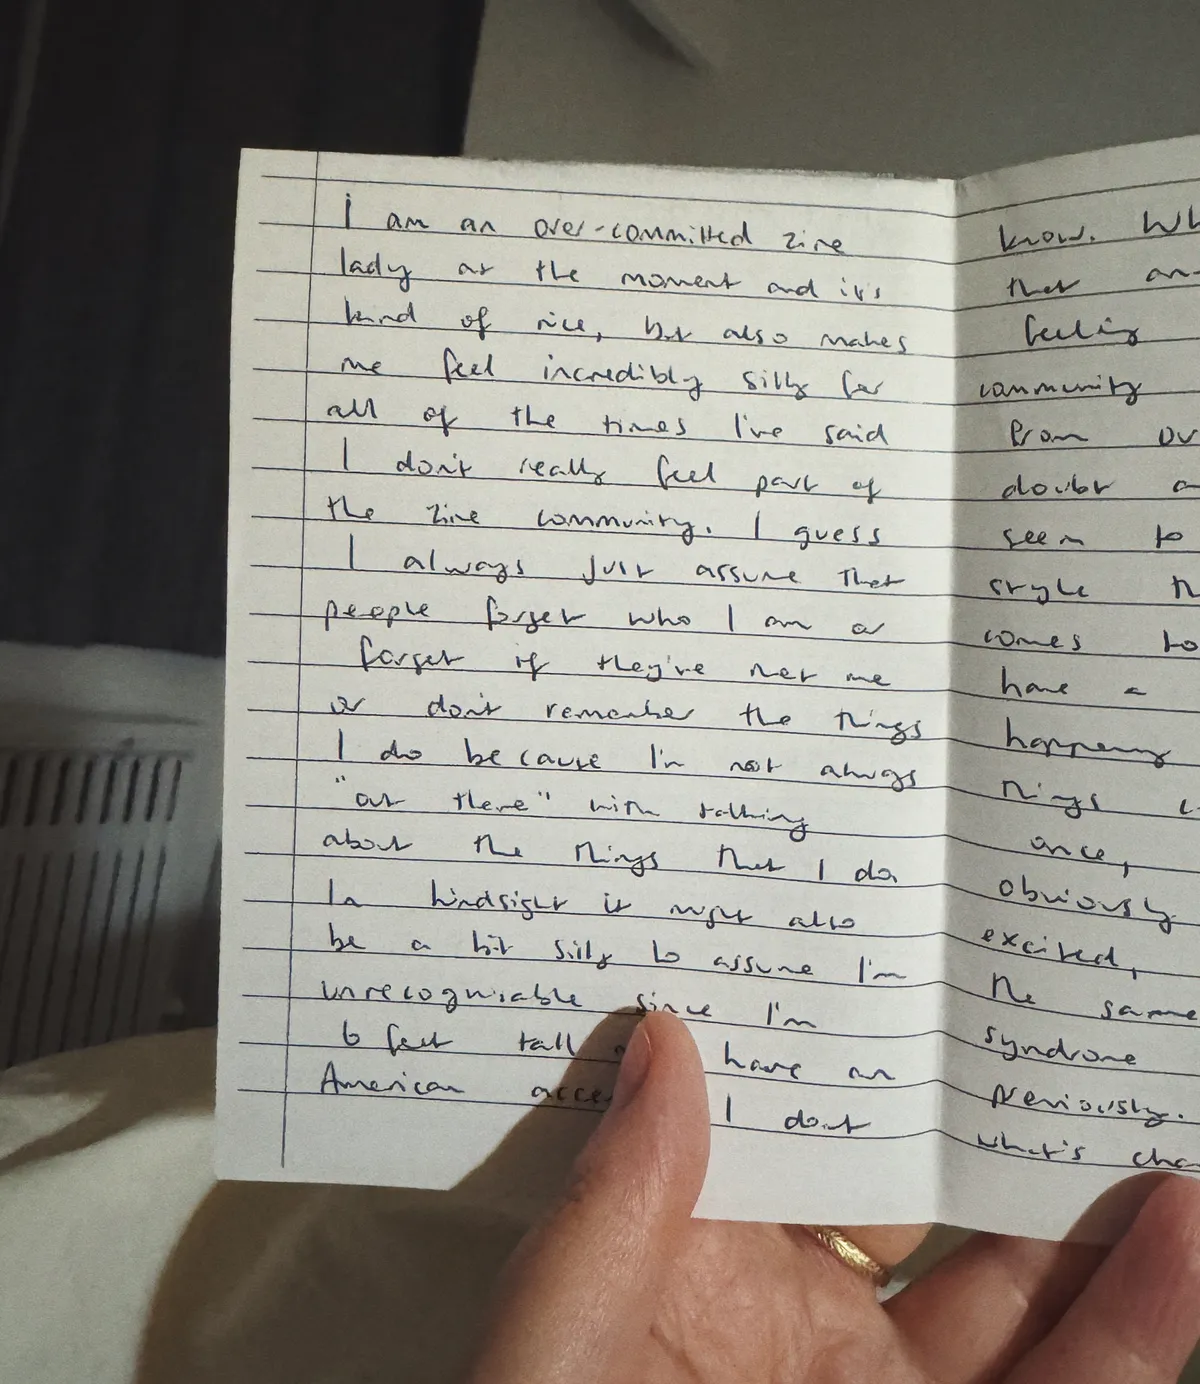 I am an over-committed zine
lady at the moment and it's
kind of nice, but also makes
me feel incredibly silly for
all of the times I've said
I don't really feel part of
the zine community. I guess
I always just assume that
people forget who I am or
forget if they've met me
or don't remember the things
I do because I'm not always
"out there" with talking
about the things that I do.
In hindsight it might also
be a bit silly to assume I'm
unrecognisable since I'm
6 feet tall have an
American I don't
know.
that
feeling
community
from
doubt a
seem to
style
comes to
have a
happening
things
once,
obviously
excited,
the same
syndrome
previously.
what's